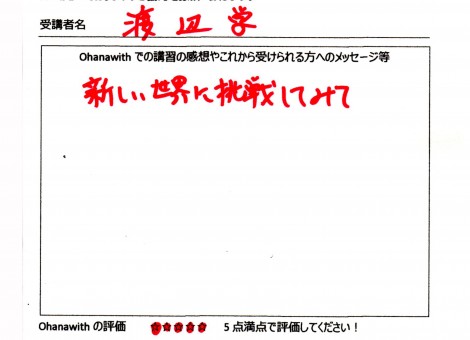 受講者名 渡辺学
Ohanawith での講習の感想やこれから受けられる方へのメッセージ等
新しい世界に挑戦してみて
Ohanawith の評価 ★★★★★ 5 点満点で評価してください！